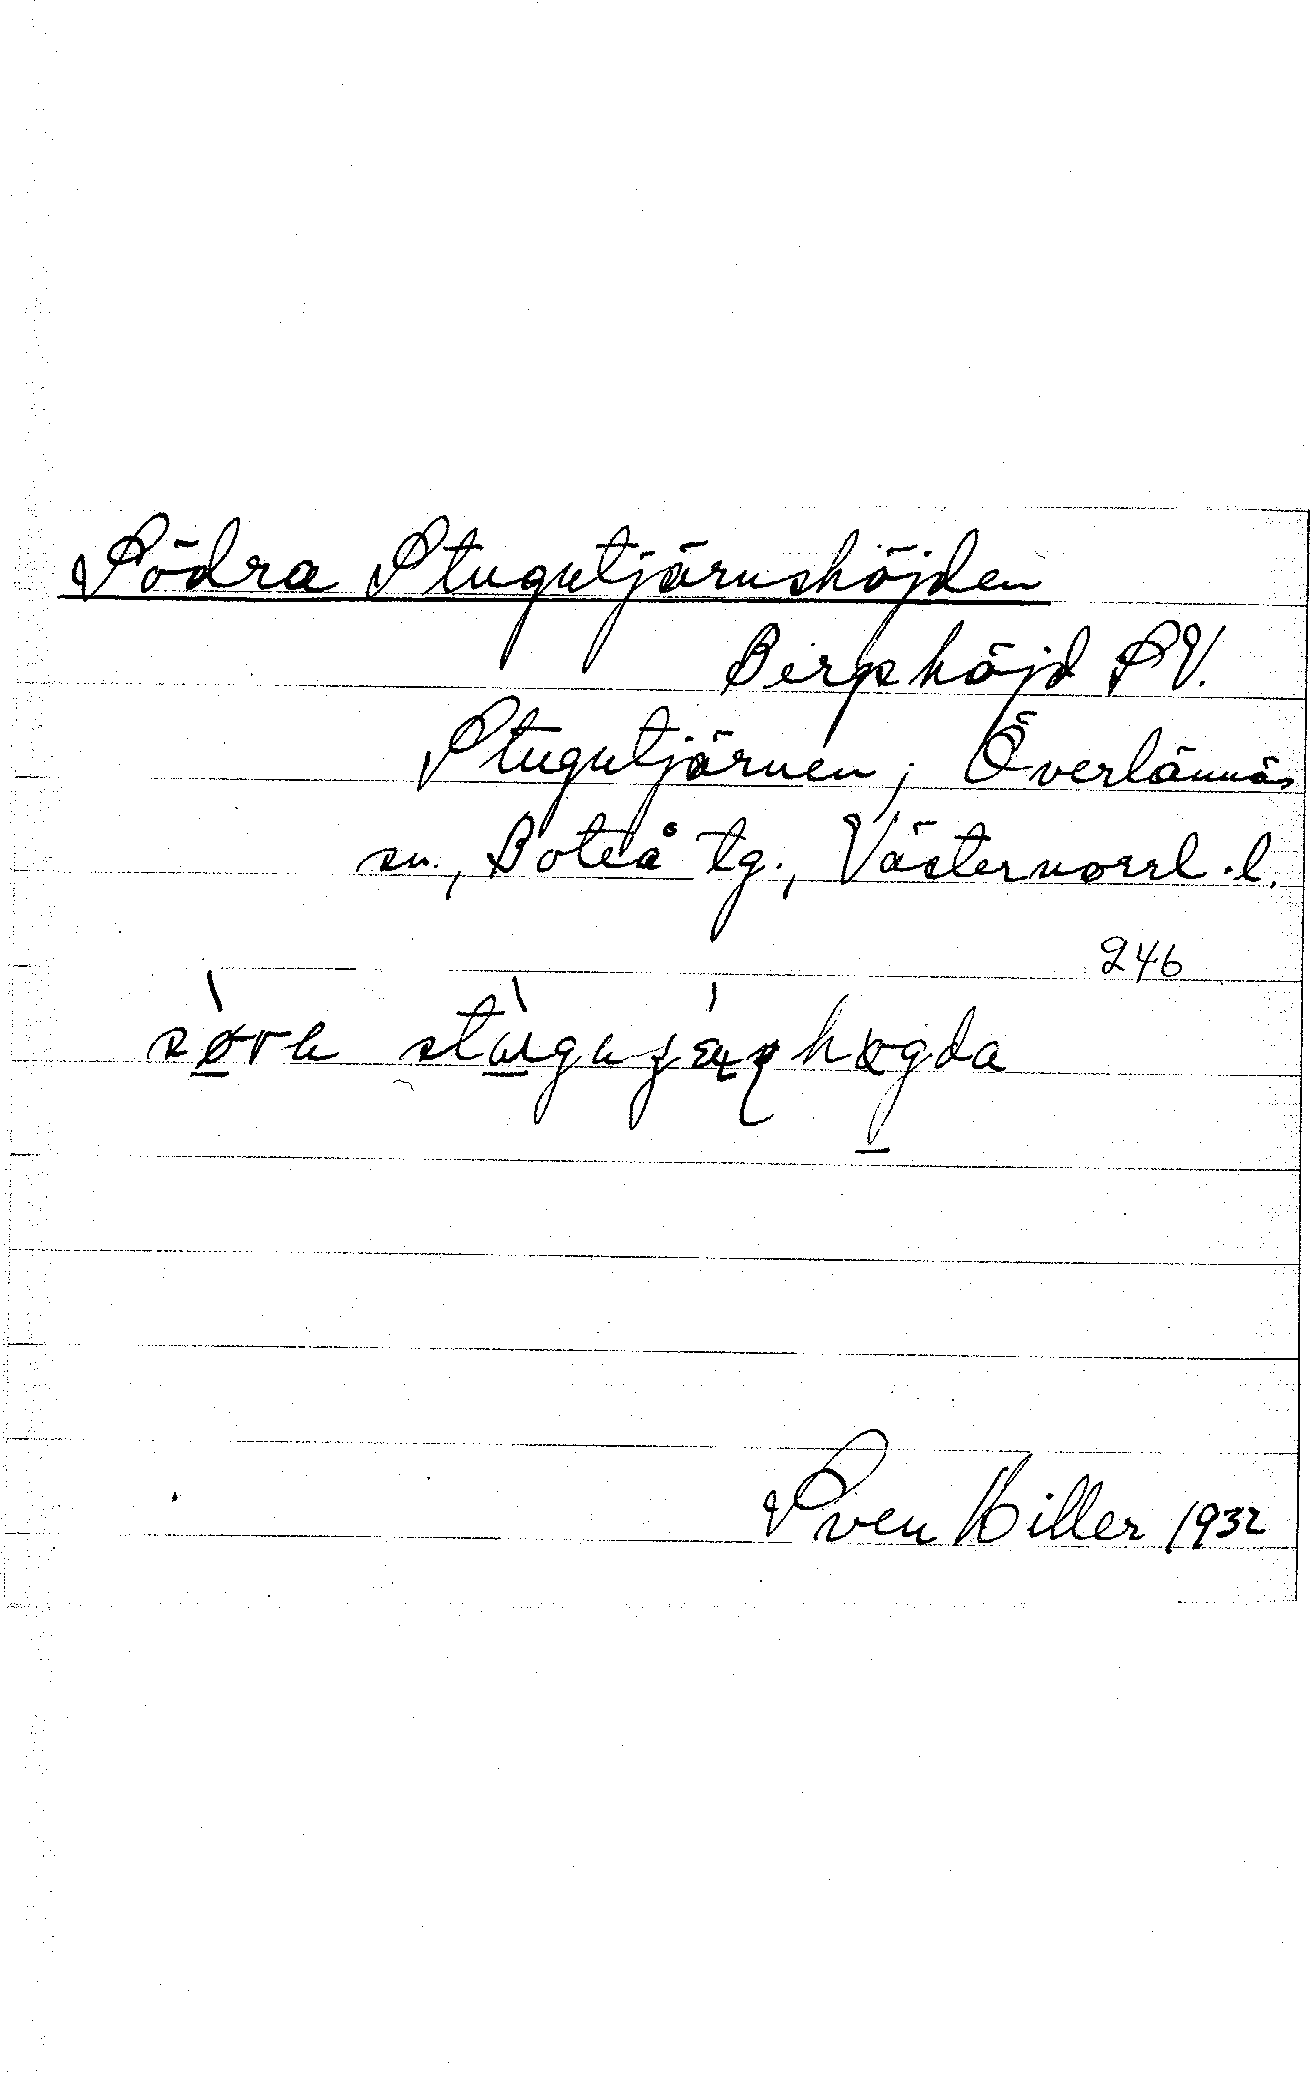 Södra Stugutjärnshöjden
Bergshöjd SV.
Stugutjärnen; Överlännäs
sn., Boteå tg., Västernorrl. l.
246
Sven Hiller 1932